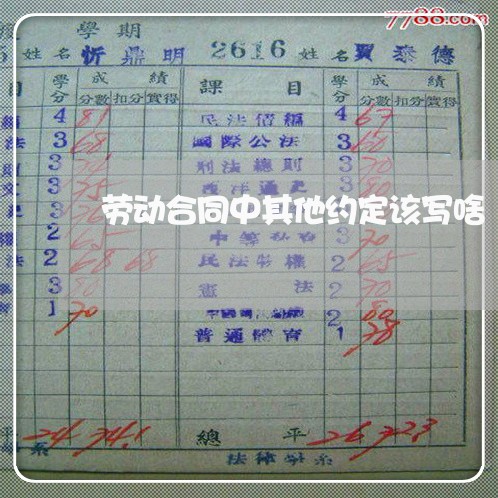 7788.com
學期
姓名 忻鼎明 2616 姓名 賈泰德
目 學分 成績 課目 學分 成績
分數 扣分 實得 分數 扣分 實得
4 81 民法債編 4 67
法 3 68 國際公法 3 60
3 刑法總則 3 70
3 75 西洋通史 3 80
劳动合同中其他约定该写啥
2 3 70
法 2 68 68 民法物權 2 65
3 80 憲法 2 70
1 70 2 80
普通體育 1 78
平 24 74.1 總平 26 72.3
系 法律學系